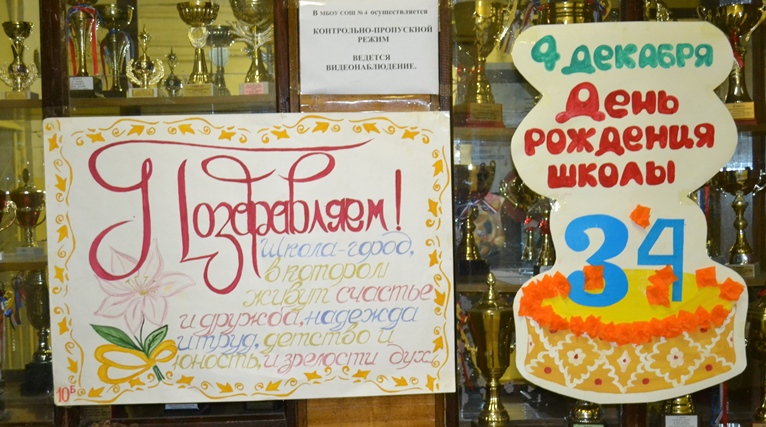 В МБОУ СОШ №4 осуществляется
КОНТРОЛЬНО-ПРОПУСКНОЙ
РЕЖИМ
ВЕДЕТСЯ
ВИДЕОНАБЛЮДЕНИЕ.
Поздравляем!
Школа-город,
в котором
живут счастье
и дружба, надежда
и труд, детство и
юность, и зрелости дух!
10Б
4 декабря
День
рождения
школы
34